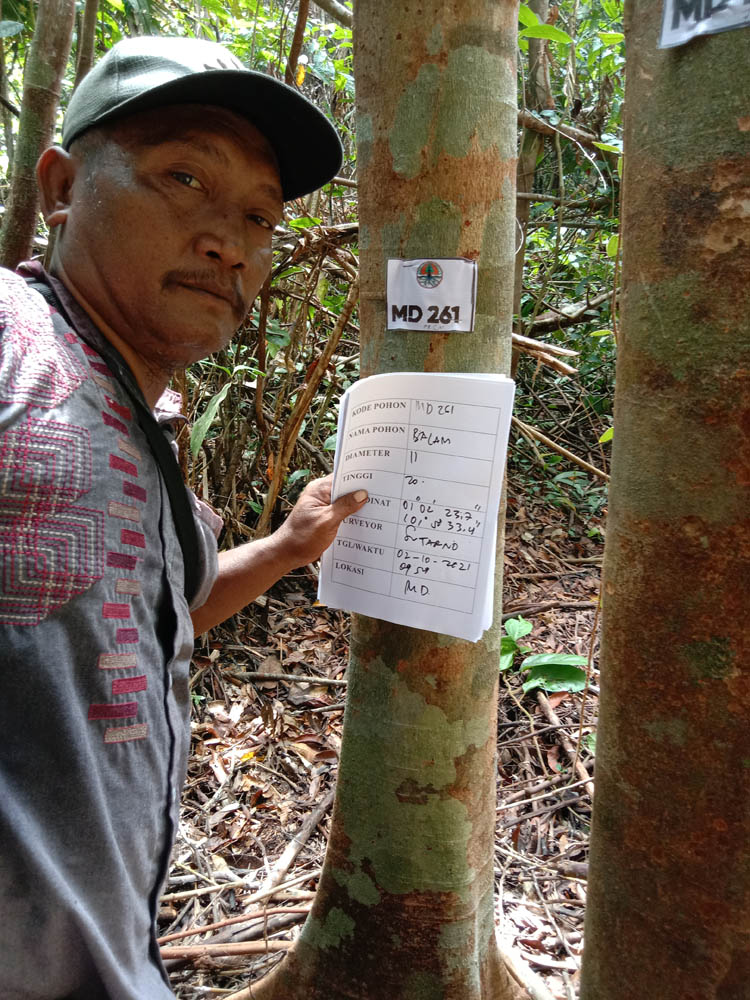 MD
MD 261
KODE POHON MD 261
NAMA POHON BALAM
DIAMETER 11
TINGGI 20.
DINAT 01° 02' 23.7"
101° 58' 33.4"
SURVEYOR SUTARNO
TGL/WAKTU 02-10-2021
09 59
LOKASI MD